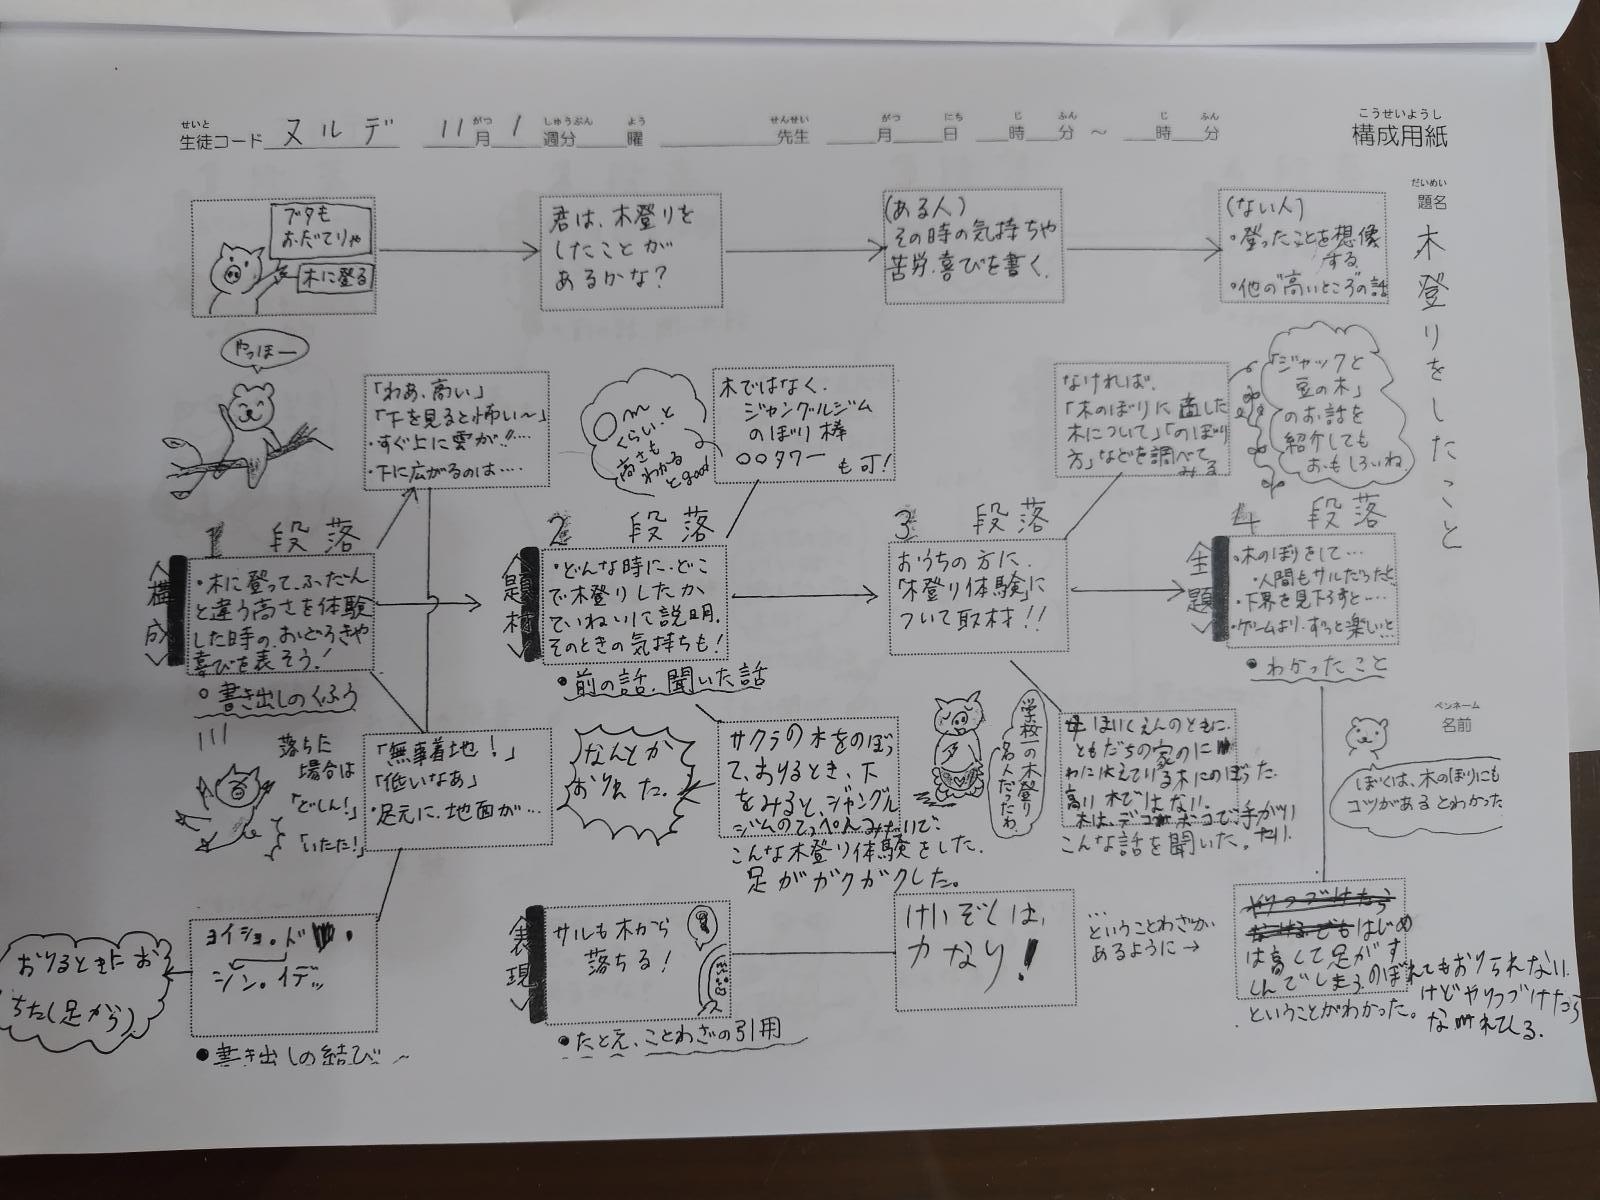 せいと
生徒コード ヌルデ
がつ しゅうぶん よう
11月 1 週分 曜
せんせい
先生
がつ にち じ ふん じ ふん
月 日 時 分 ～ 時 分
こうせいようし
構成用紙
だいめい
題名
木登りをしたこと
ブタも
おだてりゃ
木に登る
君は、木登りを
したことが
あるかな?
(ある人)
その時の気持ちや
苦労.喜びを書く.
(ない人)
・登ったことを想像
する
・他の"高いところ"の話
やっほー
「わあ、高い」
「下を見ると怖い〜」
・すぐ上に雲が!!....
・下に広がるのは....
○m
くらい.と
高さも
わかる
とgood
木ではなく.
ジャングルジム
のぼり棒
○○タワー
も可!
なければ.
「木のぼりに適した
木について」「のぼり
方」などを調べて
みる
「ジャックと
豆の木」
のお話を
紹介しても
おもしろいね.
1 段落
<構成>
・木に登って、ふだん
と違う高さを体験
した時の.おどろきや
喜びを表そう!
○書き出しのくふう
2 段落
<題材>
・どんな時に.どこ
で木登りしたか
ていねいに説明.
そのときの気持ちも!
●前の話.聞いた話
3 段落
おうちの方に.
「木登り体験」に
ついて取材!!
4 段落
<主題>
・木のぼりをして...
・人間もサルだったと
・下界を見下ろすと....
・ゲームより.ずっと楽しいと
●わかったこと
落ちた
場合は
「どしん!」
「いたた!」
「無事着地!」
「低いなあ」
・足元に.地面が...
なんとか
おりれた.
サクラの木をのぼっ
て、おりるとき、下
をみると、ジャングル
ジムのてっぺんみたいで.
こんな木登り体験をした.
足がガクガクした。
学校の木登り
名人だったわ
ほいくえんのともに.
ともだちの家のに
わにはえている木にのぼった.
高い木ではない.
木は、デコボコで手がいたい.
こんな話を聞いた。
ペンネーム
名前
ぼくは、木のぼりにも
コツがあるとわかった
おりるときにお
ちた(足から)
ヨイショ。ド
シン。イデッ
●書き出しの結び〜
<表現>
サルも木から
落ちる!
●たとえ、ことわざの引用
けいぞくは、
力なり!
...
ということわざが
あるように→
はじめ
は高くて足がす
くんでしまう.のぼれてもおりられない.
けどやりつづけたら
なれてくる.
ということがわかった。